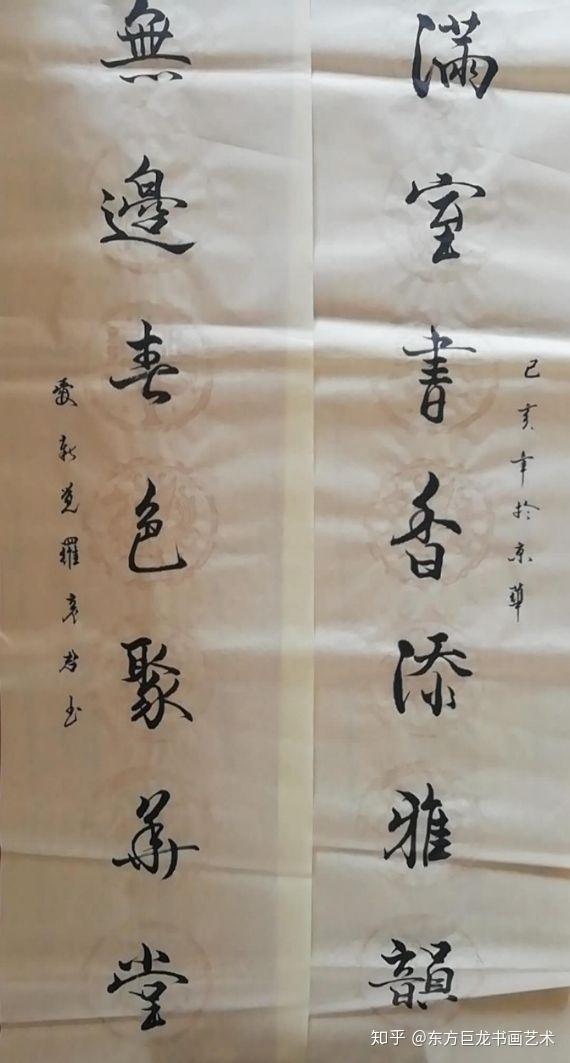 己亥年於京華
滿室書香添雅韻
無邊春色聚華堂
愛新覺羅 君書
知乎 @东方巨龙书画艺术